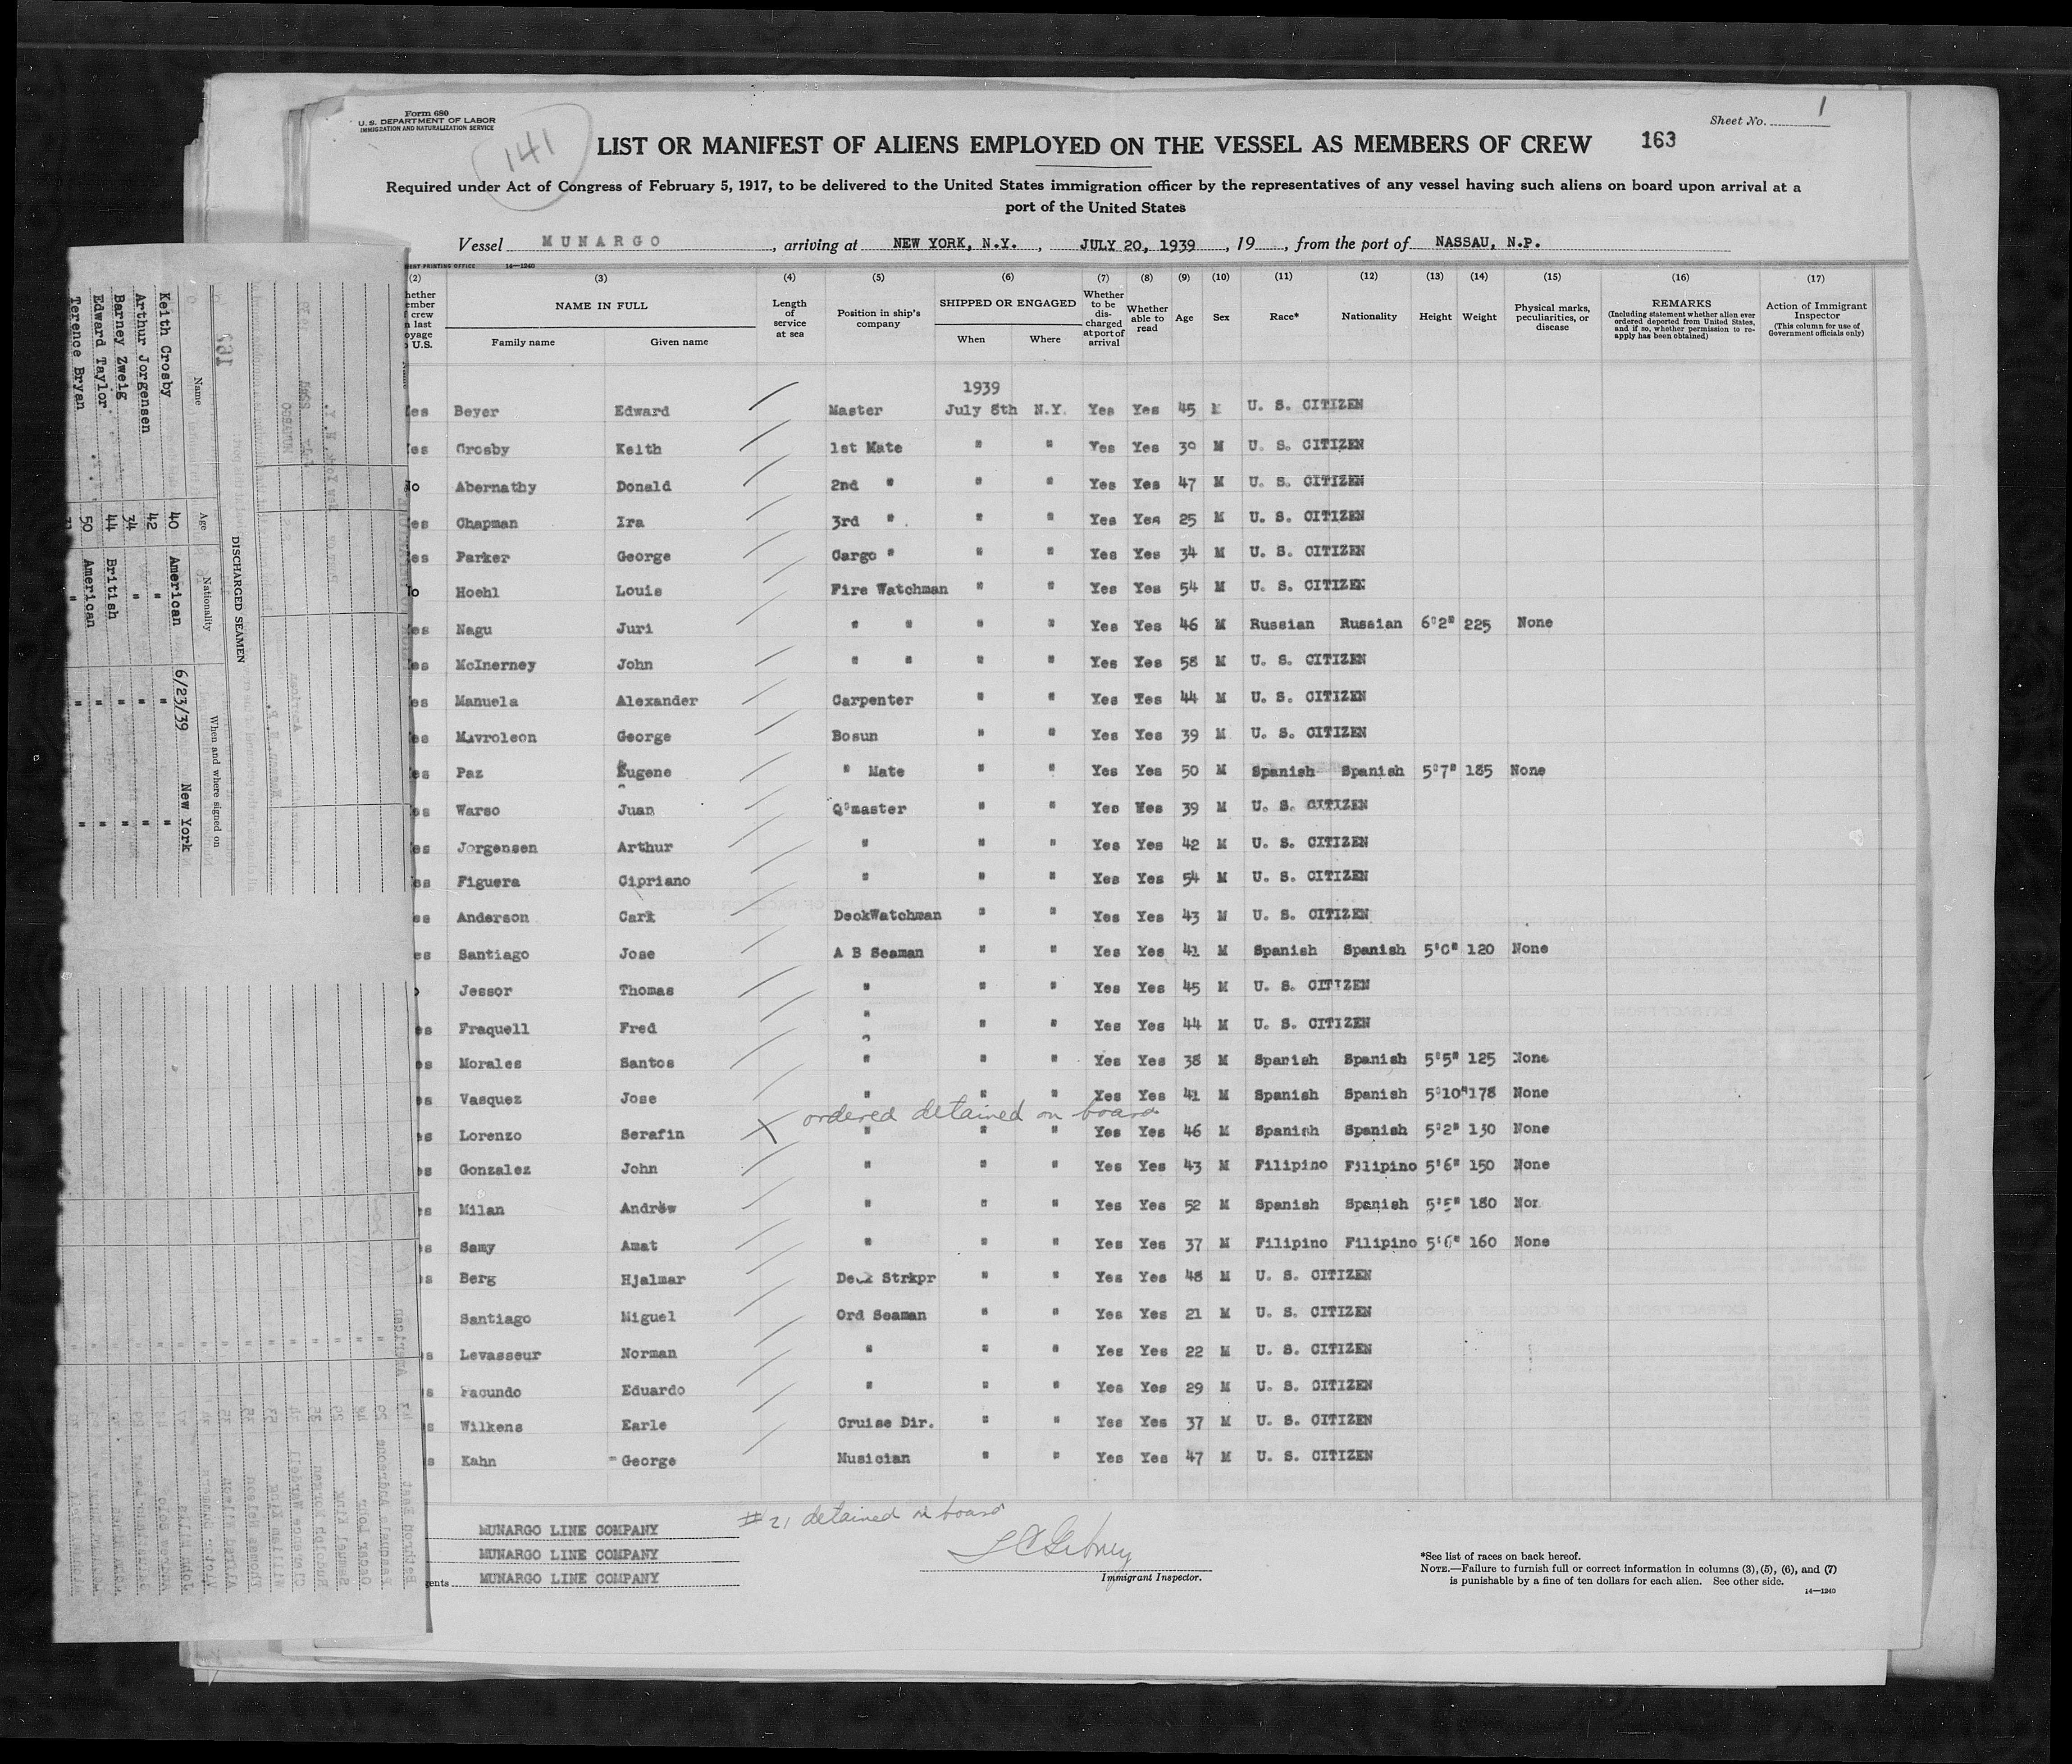 Form 680
U. S. DEPARTMENT OF LABOR
IMMIGRATION AND NATURALIZATION SERVICE
141
Sheet No. 1
LIST OR MANIFEST OF ALIENS EMPLOYED ON THE VESSEL AS MEMBERS OF CREW 163
Required under Act of Congress of February 5, 1917, to be delivered to the United States immigration officer by the representatives of any vessel having such aliens on board upon arrival at a
port of the United States
Vessel MUNARGO, arriving at NEW YORK, N.Y., JULY 20, 1939, 19, from the port of NASSAU, N.P.
14—1240
(2) (3) (4) (5) (6) (7) (8) (9) (10) (11) (12) (13) (14) (15) (16) (17)
NAME IN FULL
Family name Given name
Length of service at sea
Position in ship's company
SHIPPED OR ENGAGED
When Where
Whether to be discharged at port of arrival
Whether able to read
Age Sex Race* Nationality Height Weight
Physical marks, peculiarities, or disease
REMARKS
(Including statement whether alien ever ordered deported from United States, and if so, whether permission to reapply has been obtained)
Action of Immigrant Inspector
(This column for use of Government officials only)
1939
es Beyer Edward Master July 8th N.Y. Yes Yes 45 M U. S. CITIZEN
es Crosby Keith 1st Mate " " Yes Yes 39 M U. S. CITIZEN
o Abernathy Donald 2nd " " " Yes Yes 47 M U. S. CITIZEN
es Chapman Ira 3rd " " " Yes Yes 25 M U. S. CITIZEN
es Parker George Cargo " " " Yes Yes 34 M U. S. CITIZEN
o Hoehl Louis Fire Watchman " " Yes Yes 54 M U. S. CITIZEN
es Nagu Juri " " " " Yes Yes 46 M Russian Russian 6'2" 225 None
es McInerney John " " " " Yes Yes 58 M U. S. CITIZEN
es Manuela Alexander Carpenter " " Yes Yes 44 M U. S. CITIZEN
es Mavroleon George Bosun " " Yes Yes 39 M U. S. CITIZEN
es Paz Eugene " Mate " " Yes Yes 50 M Spanish Spanish 5'7" 185 None
es Warso Juan Q'master " " Yes Yes 39 M U. S. CITIZEN
es Jorgensen Arthur " " " Yes Yes 42 M U. S. CITIZEN
es Figuera Cipriano " " " Yes Yes 54 M U. S. CITIZEN
es Anderson Carl DeckWatchman " " Yes Yes 43 M U. S. CITIZEN
es Santiago Jose A B Seaman " " Yes Yes 41 M Spanish Spanish 5'0" 120 None
o Jessor Thomas " " " Yes Yes 45 M U. S. CITIZEN
es Fraquell Fred " " " Yes Yes 44 M U. S. CITIZEN
es Morales Santos " " " Yes Yes 38 M Spanish Spanish 5'5" 125 None
es Vasquez Jose " " " Yes Yes 41 M Spanish Spanish 5'10" 178 None
X ordered detained on board
es Lorenzo Serafin " " " Yes Yes 46 M Spanish Spanish 5'2" 130 None
es Gonzalez John " " " Yes Yes 43 M Filipino Filipino 5'6" 150 None
s Milan Andrew " " " Yes Yes 52 M Spanish Spanish 5'5" 180 Non
s Samy Amat " " " Yes Yes 37 M Filipino Filipino 5'6" 160 None
s Berg Hjalmar Deck Strkpr " " Yes Yes 48 M U. S. CITIZEN
Santiago Miguel Ord Seaman " " Yes Yes 21 M U. S. CITIZEN
s Levasseur Norman " " " Yes Yes 22 M U. S. CITIZEN
s Facundo Eduardo " " " Yes Yes 29 M U. S. CITIZEN
s Wilkens Earle Cruise Dir. " " Yes Yes 37 M U. S. CITIZEN
s Kahn George Musician " " Yes Yes 47 M U. S. CITIZEN
#21 detained on board
MUNARGO LINE COMPANY
MUNARGO LINE COMPANY
MUNARGO LINE COMPANY
Immigrant Inspector.
*See list of races on back hereof.
NOTE.—Failure to furnish full or correct information in columns (3), (5), (6), and (7)
is punishable by a fine of ten dollars for each alien. See other side.
14—1240
DISCHARGED SEAMEN
Name Age Nationality When and where signed on
Keith Crosby 40 American 6/23/39 New York
Arthur Jorgensen 42 " " "
Barney Zweig 34 " " "
Edward Taylor 44 British " "
Terence Bryan 50 American " "